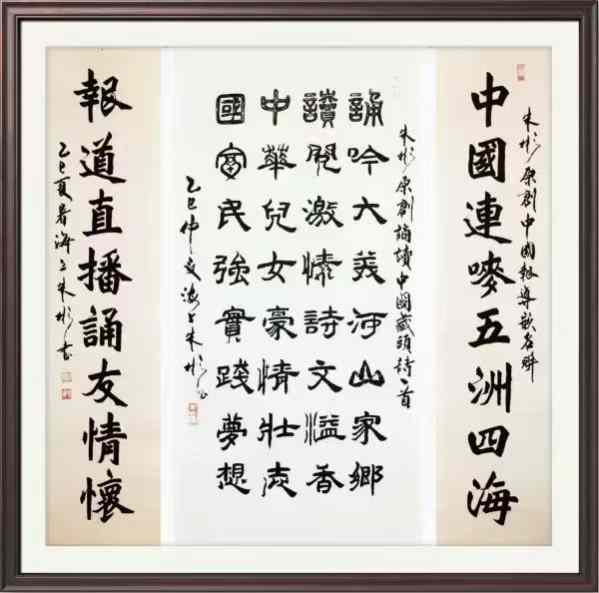 朱彬原創中國報導嵌名联
中國連嘜五洲四海
朱彬原創誦讀中國藏頭詩一首
誦吟大羙河山家鄉
讀閱激情詩文溢香
中華兒女豪情壯志
國富民強實踐夢想
乙巳仲夏海上朱彬
報道直播誦友情懷
乙巳夏暑海上朱彬书